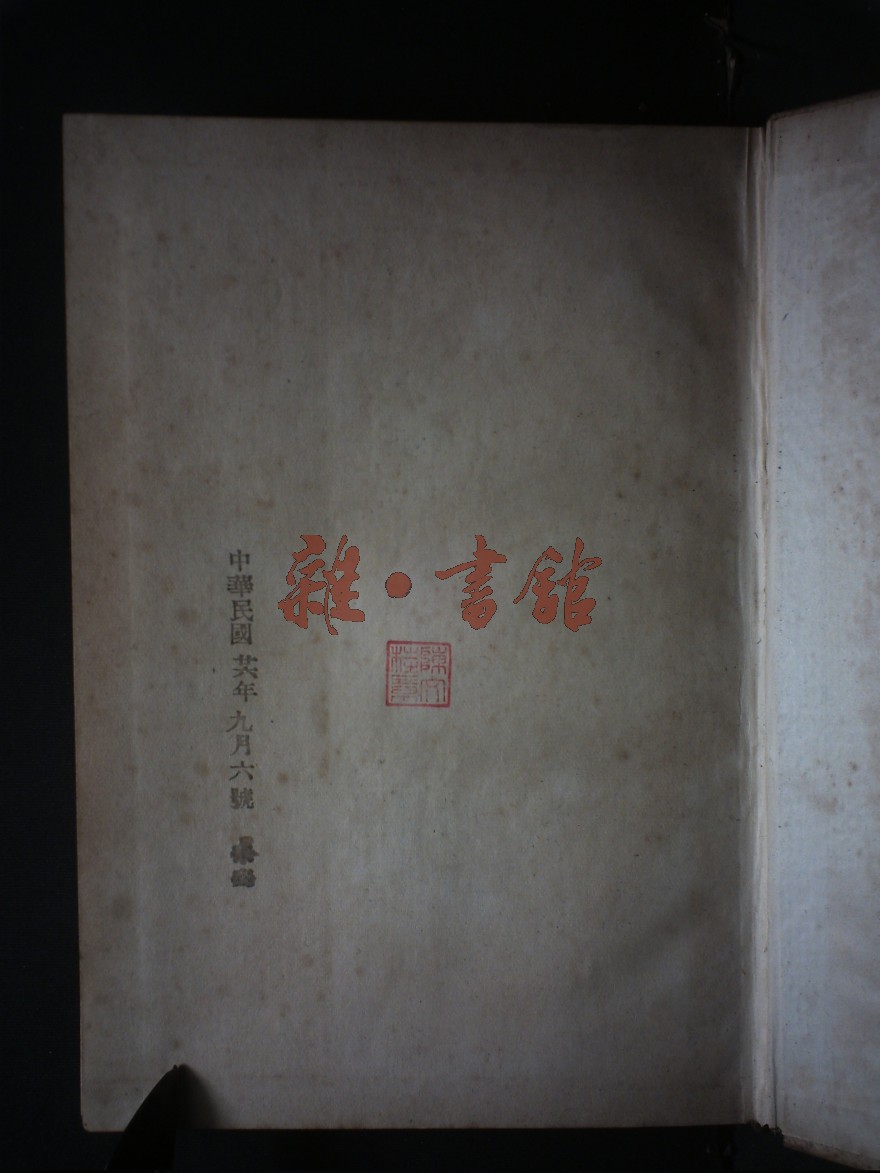 中華民國 廿六年 九月六號
雜·書館